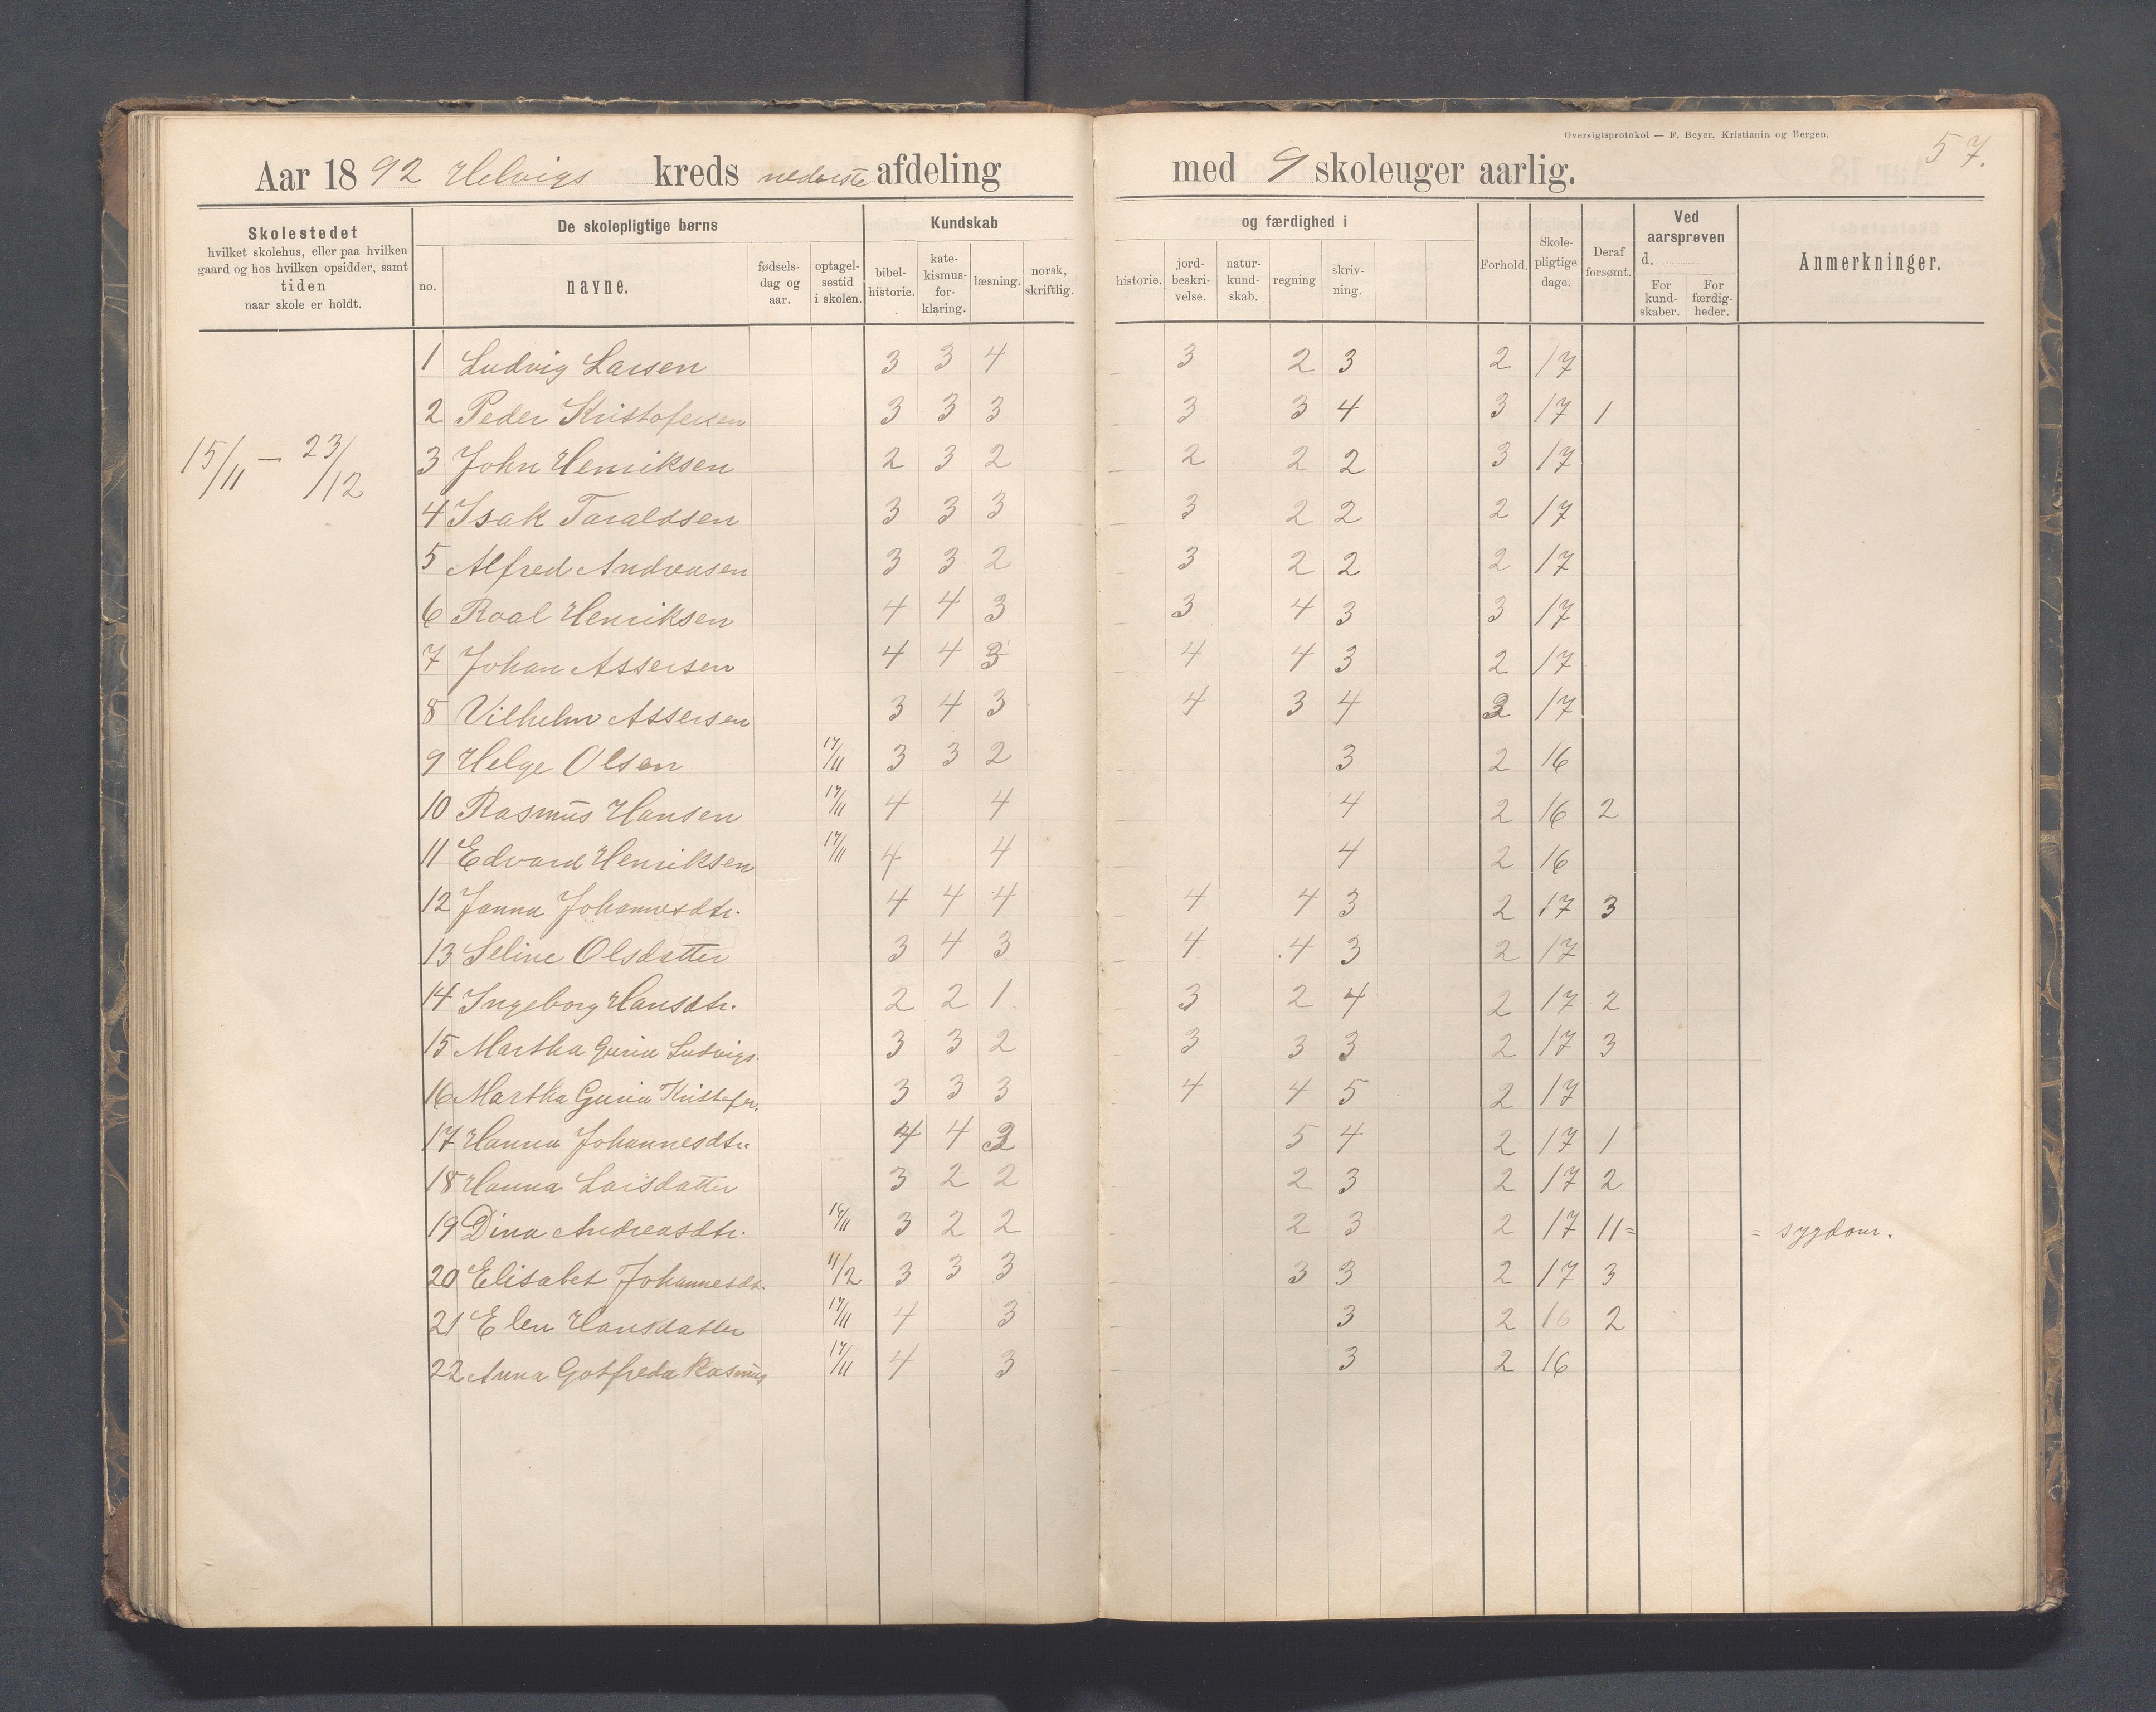 Oversigtsprotokol — F. Beyer, Kristiania og Bergen.
57.
Aar 1892 Helvigs kreds nederste afdeling med 9 skoleuger aarlig.
Skolestedet hvilket skolehus, eller paa hvilken gaard og hos hvilken opsidder, samt tiden naar skole er holdt.
De skolepligtige børns
no. navne. fødselsdag og aar. optagelsestid i skolen.
Kundskab og færdighed i
bibelhistorie. katekismusforklaring. læsning. norsk, skriftlig. historie. jordbeskrivelse. naturkundskab. regning skrivning.
Forhold. Skolepligtige dage. Deraf forsømt.
Ved aarsprøven d.
For kundskaber. For færdigheder.
Anmerkninger.
15/11 — 23/12
1 Ludvig Larsen 3 3 4 3 2 3 2 17
2 Peder Kristofersen 3 3 3 3 3 4 3 17 1
3 John Henriksen 2 3 2 2 2 2 3 17
4 Isak Taraldsen 3 3 3 3 2 2 2 17
5 Alfred Andreasen 3 3 2 3 2 2 2 17
6 Roal Henriksen 4 4 3 3 4 3 3 17
7 Johan Assersen 4 4 3 4 4 3 2 17
8 Vilhelm Assersen 3 4 3 4 3 4 3 17
9 Helge Olsen 17/11 3 3 2 3 2 16
10 Rasmus Hansen 17/11 4 4 4 2 16 2
11 Edvard Henriksen 17/11 4 4 4 2 16
12 Janna Johannesdtr. 4 4 4 4 4 3 2 17 3
13 Seline Olsdatter 3 4 3 4 4 3 2 17
14 Ingeborg Hansdtr. 2 2 1 3 2 4 2 17 2
15 Martha Guria Ludvigs. 3 3 2 3 3 3 2 17 3
16 Martha Guria Kristofer. 3 3 3 4 4 5 2 17
17 Hanna Johannesdtr. 4 4 3 5 4 2 17 1
18 Hanna Larsdatter 3 2 2 2 3 2 17 2
19 Dina Andreasdtr. 3 2 2 2 3 2 17 11 = = sygdom.
20 Elisabet Johannesdt. 11/2 3 3 3 3 3 2 17 3
21 Elen Hansdatter 17/11 4 3 3 2 16 2
22 Anna Gotfreda Rasmus 17/11 4 3 3 2 16